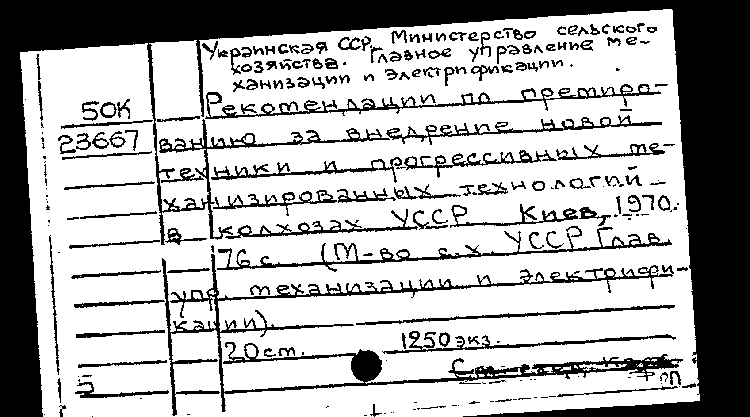 Украинская ССР. Министерство сельского
хозяйства. Главное управление ме-
ханизации и электрификации.
50К
23667
Рекомендации по премиро-
ванию за внедрение новой
техники и прогрессивных ме-
ханизированных технологий
в колхозах УССР Киев, 1970.
76 с. (М-во с.х. УССР Глав.
упр. механизации и электрифи-
кации).
20 ст. 1250 экз.
5